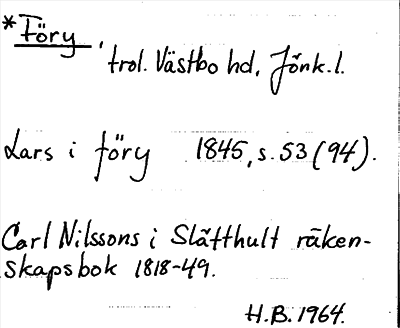 *Föry,
trol. Västbo hd, Jönk. l.
Lars i Föry 1845, s. 53 (94).
Carl Nilssons i Slätthult räken-
skapsbok 1818-49.
H.B. 1964.